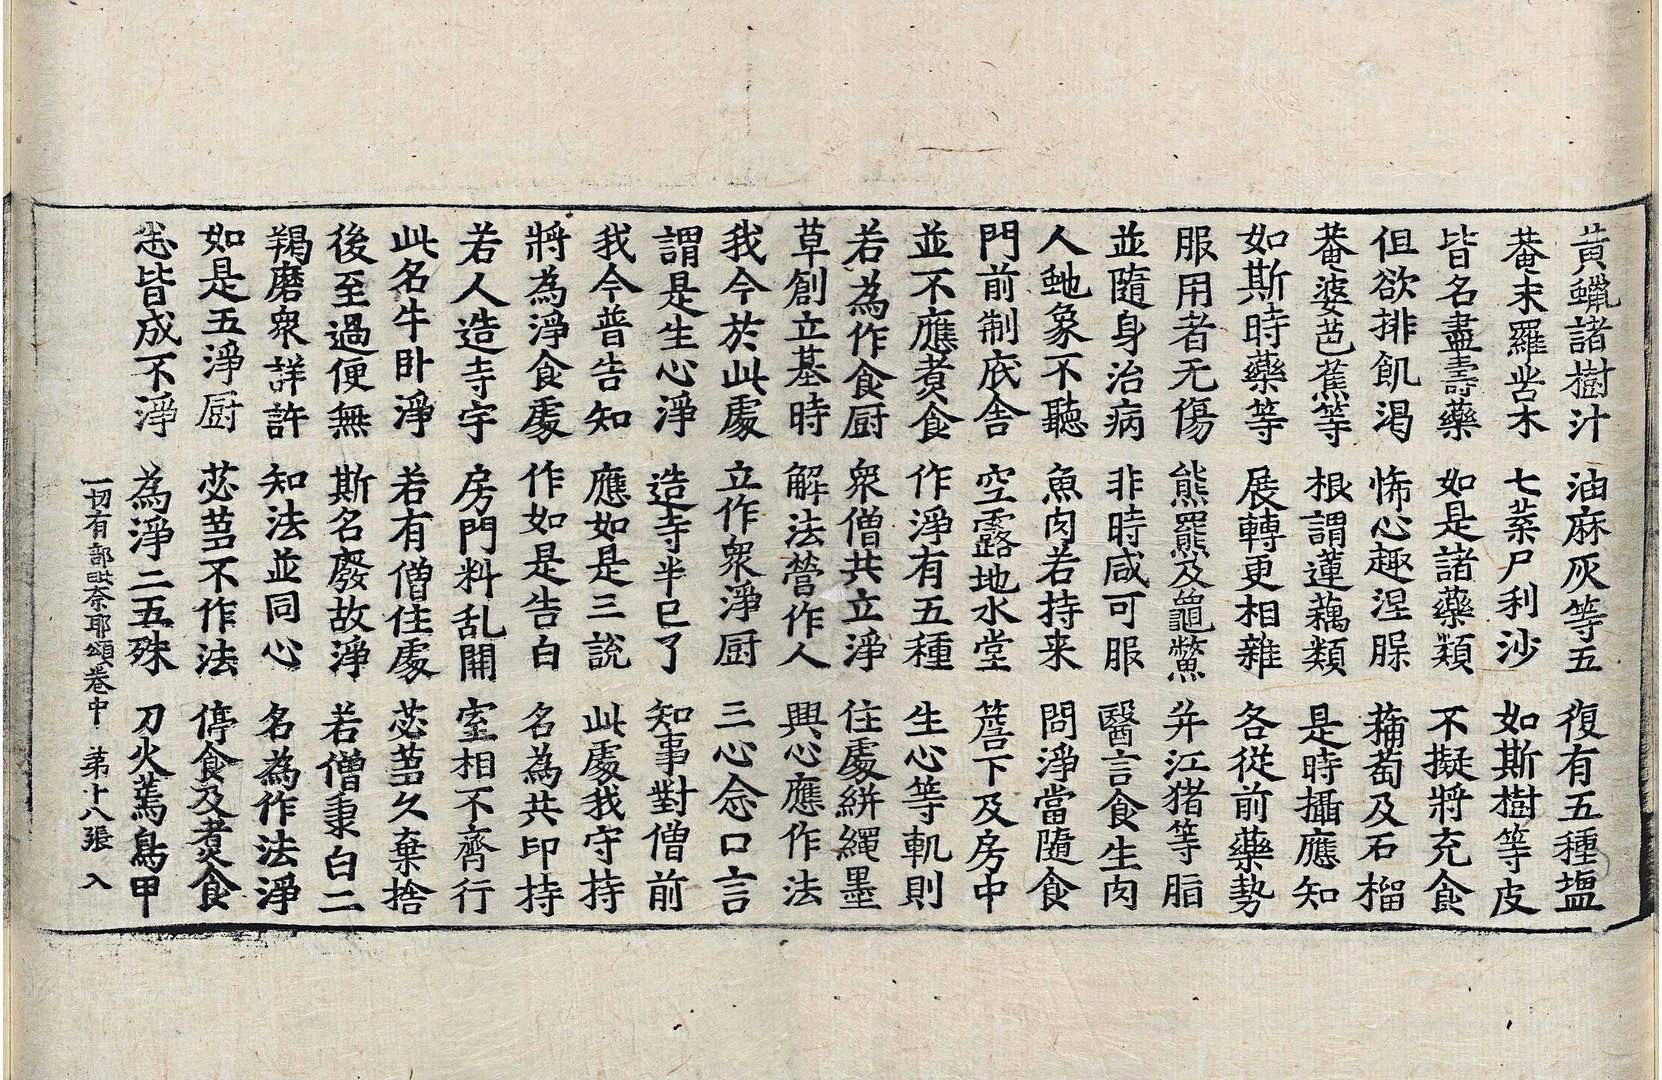 黄蠟諸樹汁 油麻灰等五 復有五種塩
菴末羅苦木 七葉尸利沙 如斯樹等皮
皆名盡壽藥 如是諸藥類 不擬將充食
但欲排飢渴 怖心趣涅槃 蒱萄及石榴
菴婆芭蕉等 根謂蓮藕類 是時攝應知
如斯時藥等 展轉更相雜 各從前藥勢
服用者无傷 熊羆及龜鱉 并江猪等脂
並隨身治病 非時咸可服 醫言食生肉
人虵象不聽 魚肉若持来 問淨當隨食
門前制底舎 空露地水堂 簷下及房中
並不應煮食 作淨有五種 生心等軌則
若為作食厨 衆僧共立淨 住處絣繩墨
草創立基時 解法營作人 興心應作法
我今於此處 立作衆淨厨 三心念口言
謂是生心淨 造寺半已了 知事對僧前
我今普告知 應如是三說 此處我守持
將為淨食處 作如是告白 名為共印持
若人造寺宇 房門料乱開 室相不齊行
此名牛卧淨 若有僧住處 苾芻久棄捨
後至過便無 斯名廢故淨 若僧秉白二
羯磨衆詳許 知法並同心 名為作法淨
如是五淨厨 苾芻不作法 停食及煮食
悉皆成不淨 為淨二五殊 刀火蔫鳥甲
一切有部毗奈耶頌卷中 第十八張 入